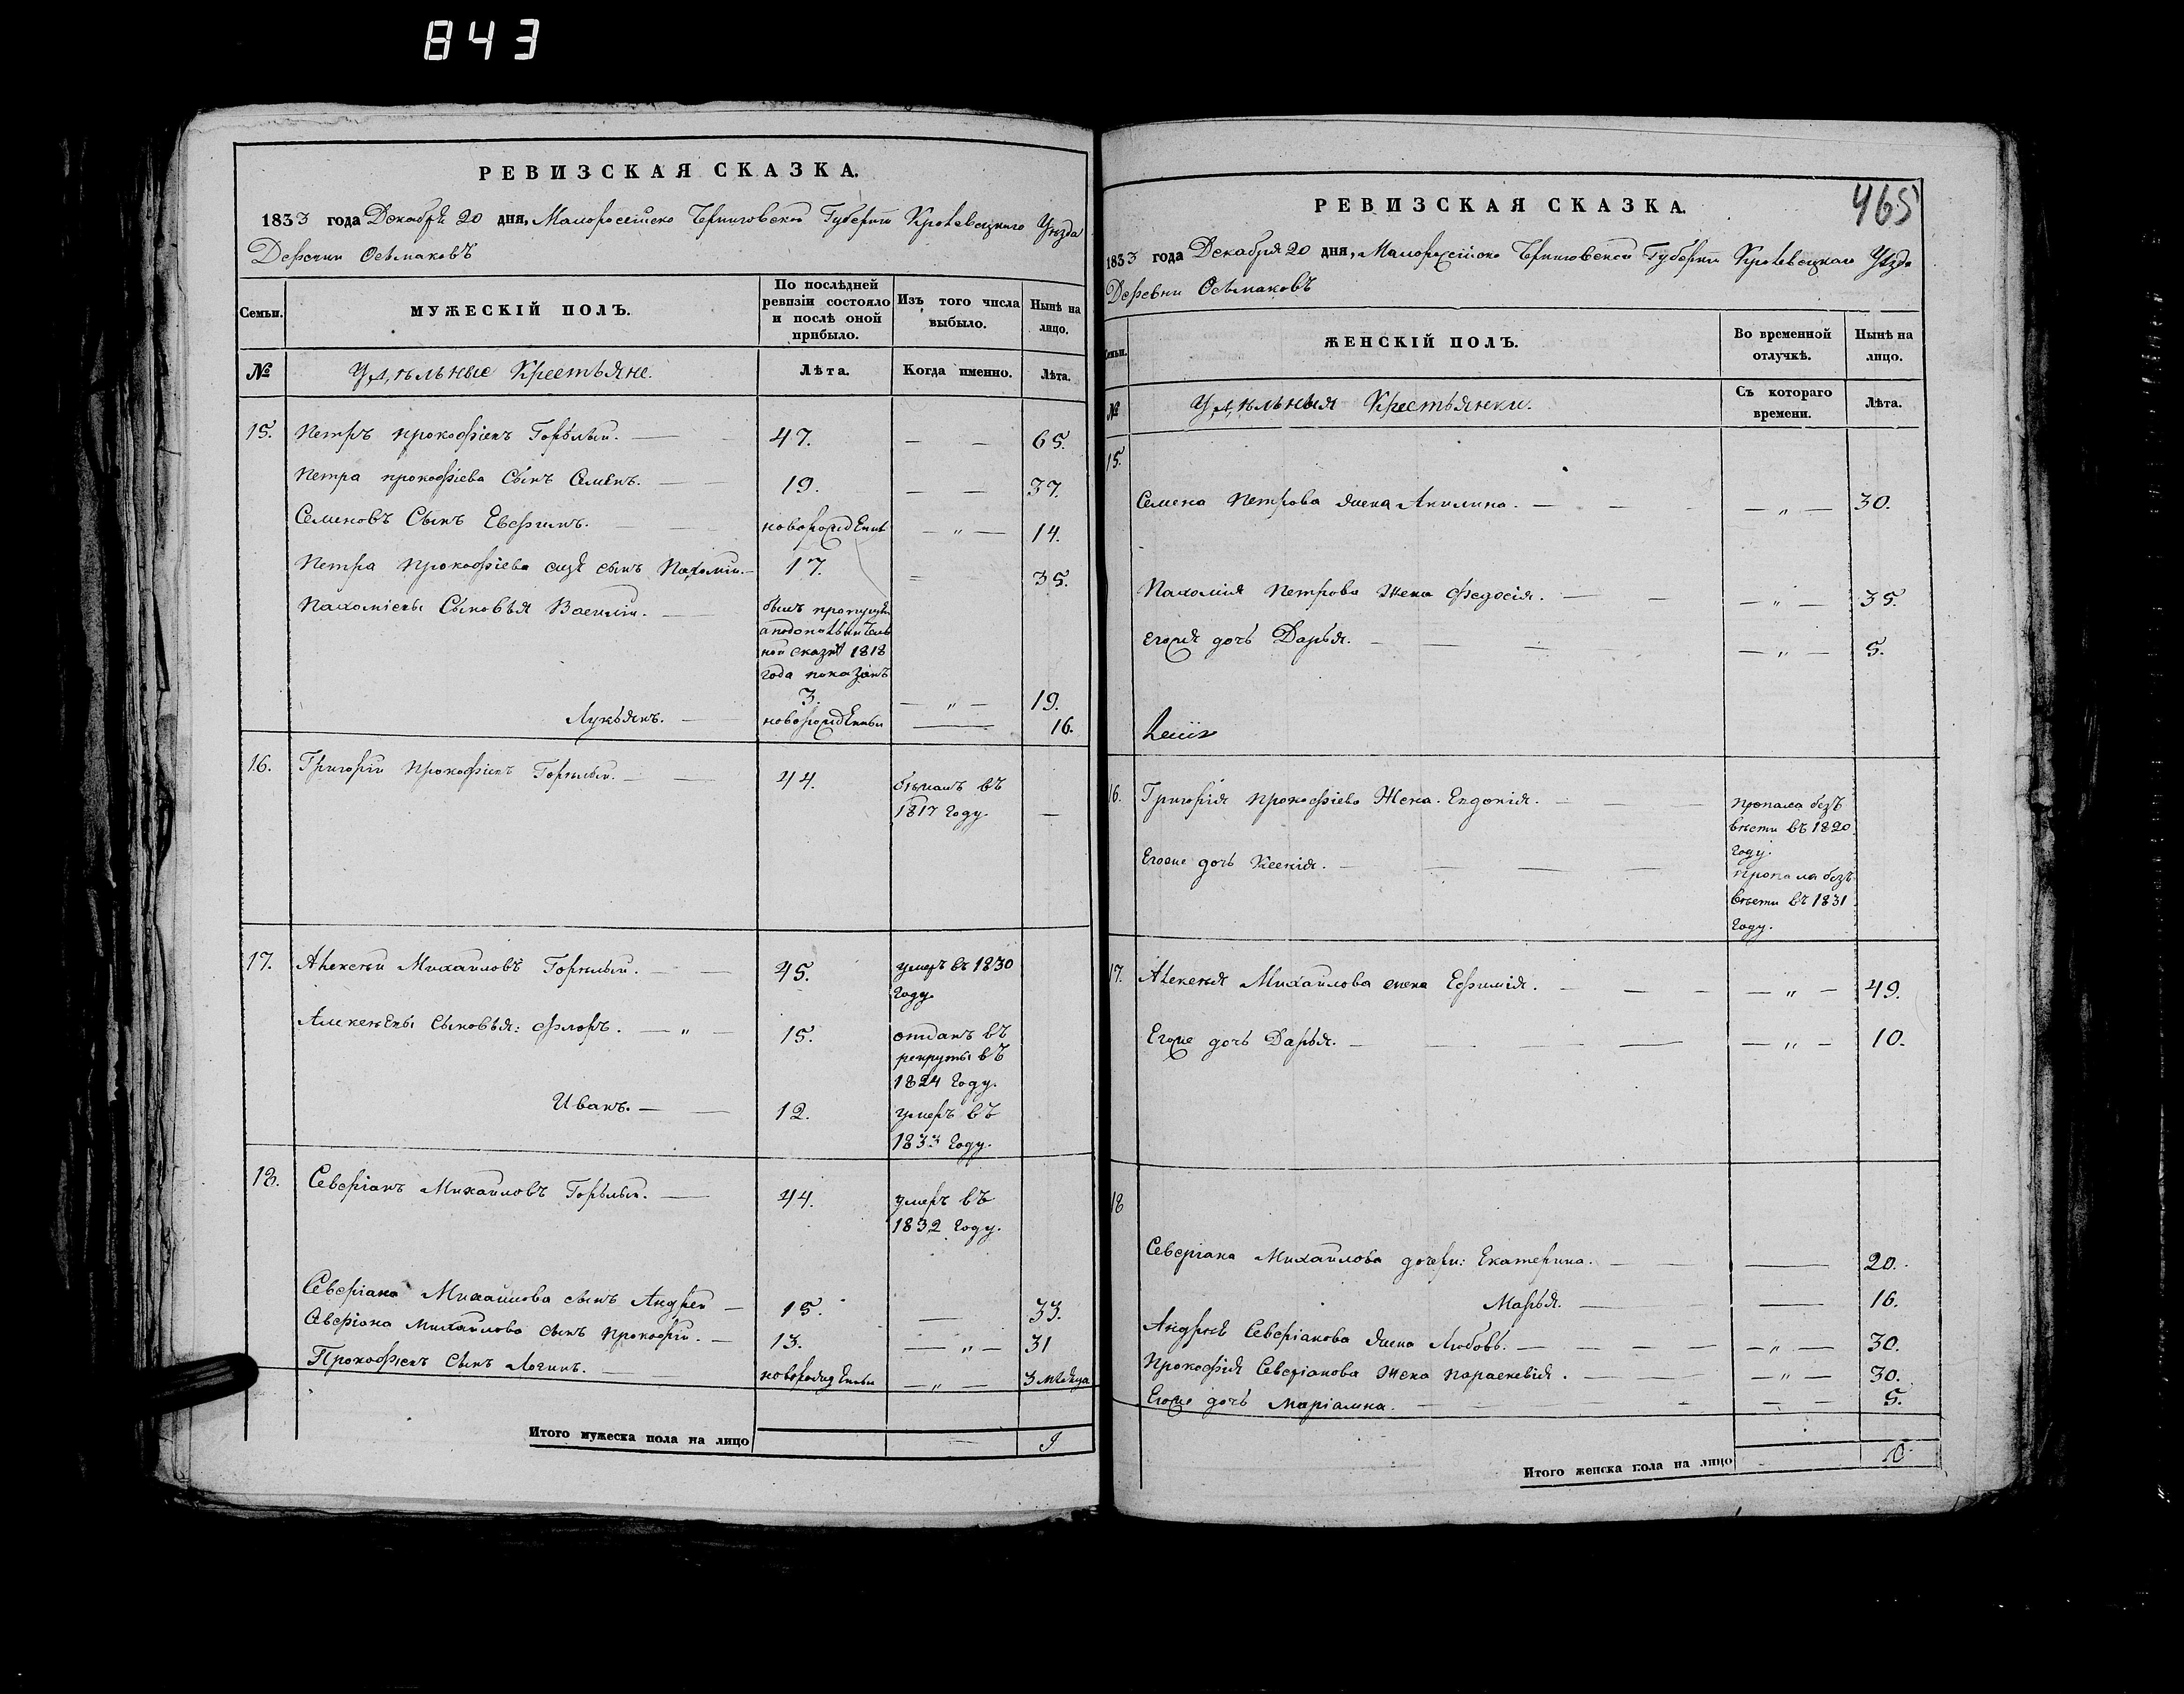 843
РЕВИЗСКАЯ СКАЗКА.
1833 года Декабря 20 дня, Малоросейско Черниговской Губернии Кролевецкаго Уезда
Деревни Осьмаковъ
Семьи.
МУЖЕСКІЙ ПОЛЪ.
По послѣдней ревизіи состояло и послѣ оной прибыло.
Изъ того числа выбыло.
Нынѣ на лицо.
№
Удѣльные Крестьяне.
Лѣта.
Когда именно.
Лѣта.
15. Петръ Прокофіевъ Горѣлый. — 47. — — 65.
Петра Прокофіева Сынъ Семенъ. — — 19. — — 37.
Семеновъ Сынъ Евфимъ. — — новорожденъ — „ — 14.
Петра Прокофіева сынъ Пахомій. — 17. = 35.
Пахоміевы Сыновья Василій. —
былъ пропущен
а по дополнитель
ной сказкѣ 1818
года показанъ
3. — „ — 19.
Лукьянъ. — новорожденный — 16.
16. Григорій Прокофіевъ Горѣлый. — — 44.
бѣжалъ въ
1817 Году. —
17. Алексѣй Михайловъ Горѣлый. — — 45.
умеръ въ 1830
Году.
Алексѣевы Сыновья: Флоръ. — „ — 15.
отданъ въ
рекруты въ
1824 Году.
Иванъ. — — 12.
умеръ въ
1833 Году.
18. Северіанъ Михайловъ Горѣлый. — 44.
умеръ въ
1832 Году.
Северіана Михайлова сынъ Андрей — 15. — 33.
Северіана Михайлова сынъ Прокофій. — 13. — „ — 31
Прокофіевъ Сынъ Логинъ. — — новорожденный — „ — 3 мѣсяца
Итого мужеска пола на лицо — 9
465
РЕВИЗСКАЯ СКАЗКА.
1833 года Декабря 20 дня, Малоросейско Черниговской Губернии Кролевецкаго Уезда
Деревни Осьмаковъ
Семьи.
ЖЕНСКІЙ ПОЛЪ.
Во временной отлучкѣ.
Нынѣ на лицо.
№
Удѣльныя Крестьянки.
Съ котораго времени.
Лѣта.
15.
Семена Петрова жена Акилина. — — — — „ — 30.
Пахомія Петрова Жена Федосія. — — — „ — 35.
Егожа дочь Дарья. — — — — — „ — 5.
16. Григорія Прокофіева Жена Евдокія. — —
пропала безъ
вѣсти въ 1820
Году.
Егоже дочь Ксенія. — — — —
пропала безъ
вѣсти въ 1831
Году.
17. Алексѣя Михайлова жена Ефимія. — — — — „ — 49.
Егоже дочь Дарья. — — — — — „ — 10.
18
Северіана Михайлова дочери: Екатерина. — — — 20.
Марья. — — — 16.
Андрѣя Северіанова жена Любовь. — — — — — „ — 30.
Прокофія Северіанова Жена Параскевія. — — — — „ — 30.
Егоже дочь Маріамна. — — — — — 5.
Итого женска пола на лицо 10